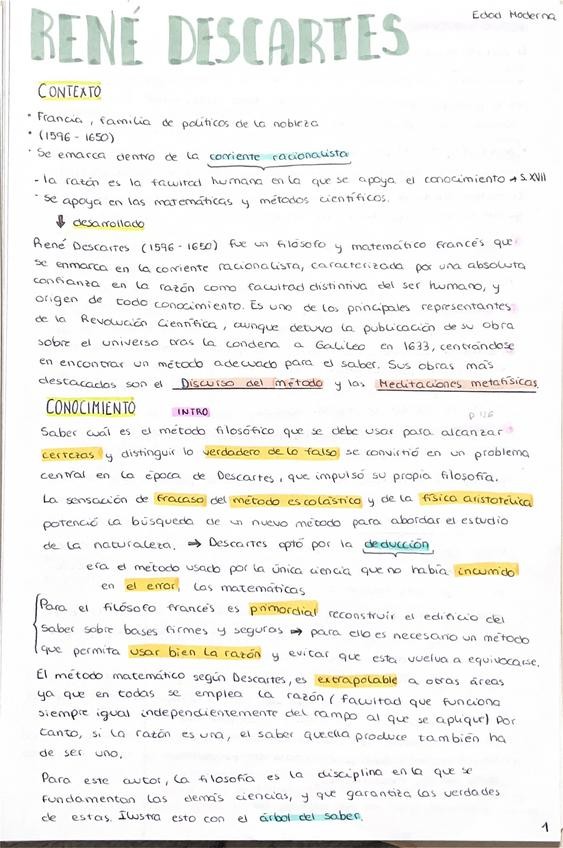 Edad Moderna
RENÉ DESCARTES
CONTEXTO
· Francia, familia de políticos de la nobleza
· (1596 - 1650)
· Se emarca dentro de la corriente racionalista
- la razón es la facultad humana en la que se apoya el conocimiento → S. XVII
- se apoya en las matemáticas y métodos científicos.
⬇ desarrollado
René Descartes (1596 - 1650) fue un filósofo y matemático francés que
se enmarca en la corriente racionalista, caracterizada por una absoluta
confianza en la razón como facultad distintiva del ser humano, y
origen de todo conocimiento. Es uno de los principales representantes
de la Revolución Científica, aunque detuvo la publicación de su obra
sobre el universo tras la condena a Galileo en 1633, centrándose
en encontrar un método adecuado para el saber. Sus obras más
destacadas son el Discurso del método y las Meditaciones metafísicas.
CONOCIMIENTO INTRO
p 126
Saber cuál es el método filosófico que se debe usar para alcanzar
certezas y distinguir lo verdadero de lo falso se convirtió en un problema
central en la época de Descartes, que impulsó su propia filosofía.
La sensación de fracaso del método escolástico y de la física aristotélica
potenció la búsqueda de un nuevo método para abordar el estudio
de la naturaleza. ⇒ Descartes optó por la deducción
era el método usado por la única ciencia que no había incurrido
en el error, las matemáticas
Para el filósofo francés es primordial reconstruir el edificio del
saber sobre bases firmes y seguras ⇒ para ello es necesario un método
que permita usar bien la razón y evitar que esta vuelva a equivocarse.
El método matemático según Descartes, es extrapolable a otras áreas
ya que en todas se emplea la razón (facultad que funciona
siempre igual independientemente del campo al que se aplique) Por
tanto, si la razón es una, el saber que ella produce también ha
de ser uno.
Para este autor, la filosofía es la disciplina en la que se
fundamentan las demás ciencias, y que garantiza las verdades
de estas. Ilustra esto con el árbol del saber.
1